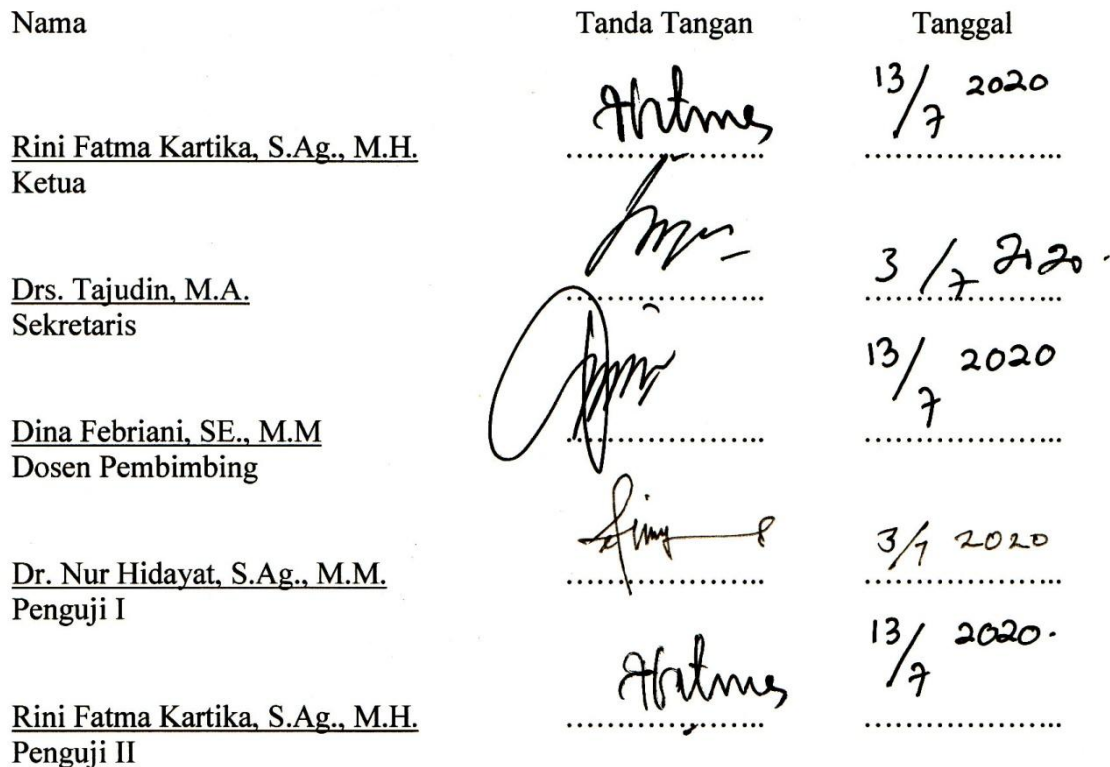 Nama Tanda Tangan Tanggal
13/7 2020
Rini Fatma Kartika, S.Ag., M.H. ....................
Ketua
3/7 2020.
Drs. Tajudin, M.A. ....................
Sekretaris
13/7 2020
Dina Febriani, SE., M.M ....................
Dosen Pembimbing
3/7 2020
Dr. Nur Hidayat, S.Ag., M.M. ....................
Penguji I
13/7 2020.
Rini Fatma Kartika, S.Ag., M.H. ....................
Penguji II